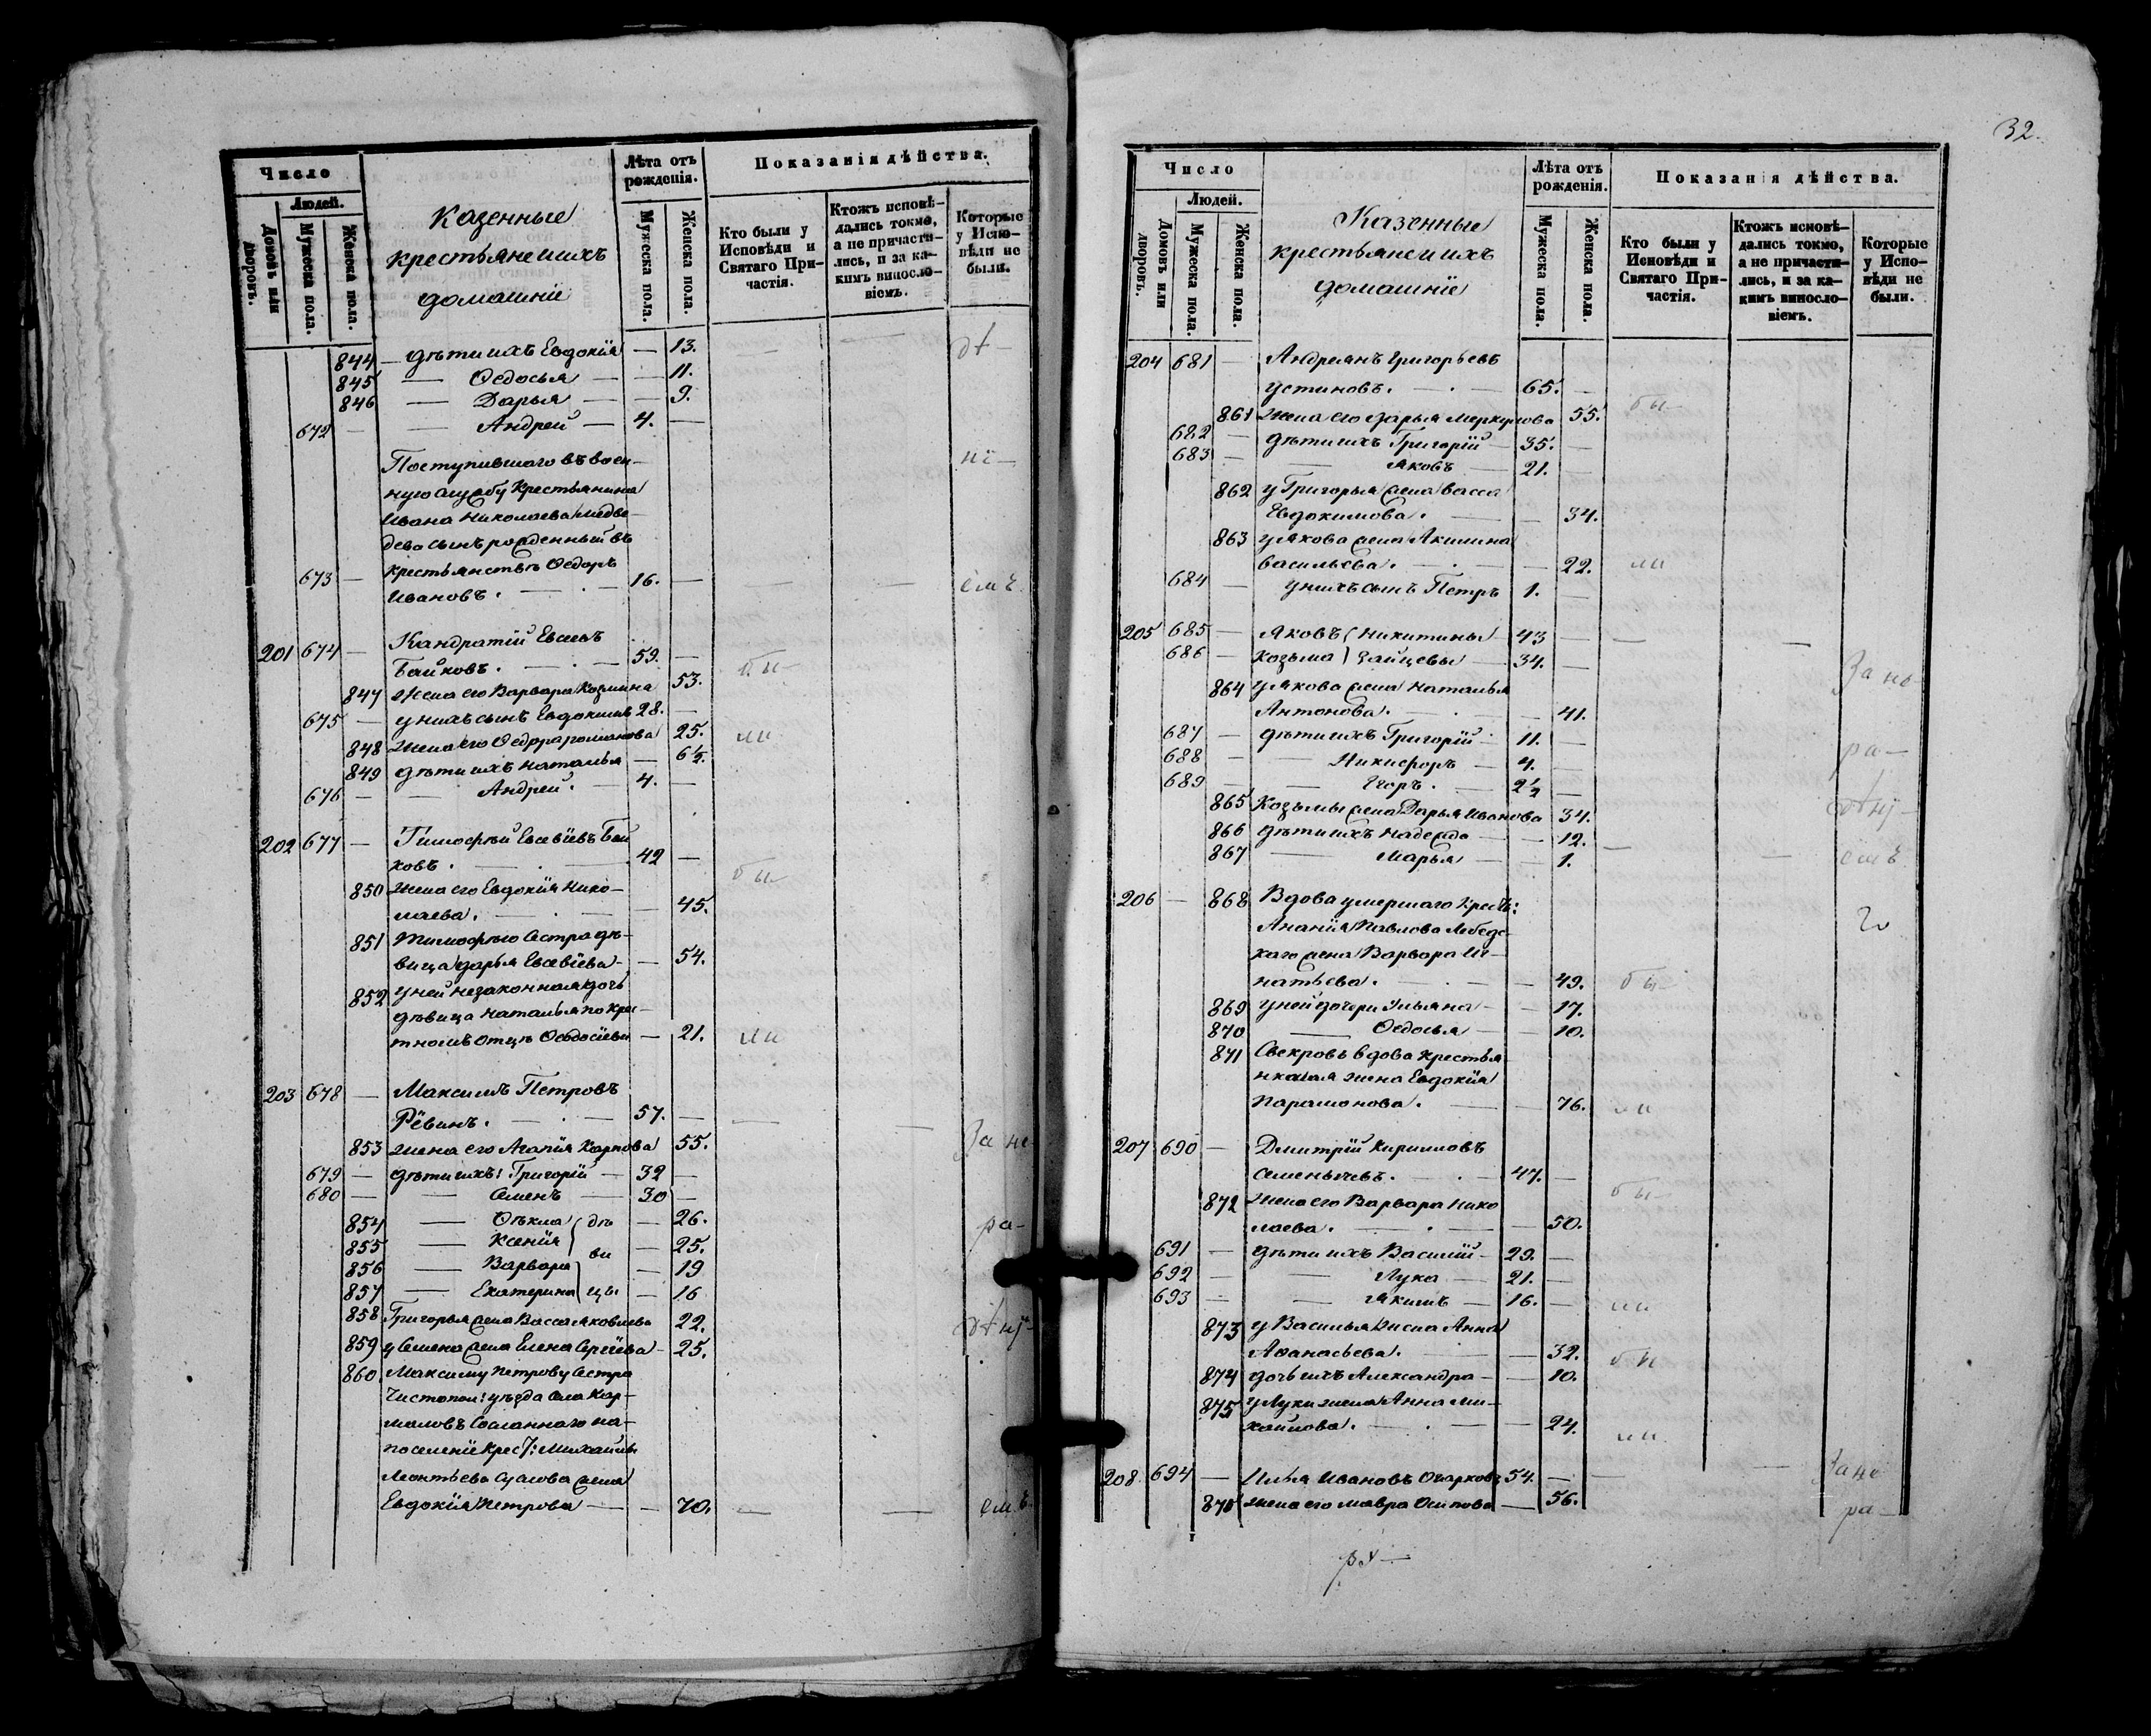 Число
Людей.
Домовъ или дворовъ.
Мужеска пола.
Женска пола.
Казенные
крестьяне и ихъ
домашніе
Лѣта отъ рожденія.
Мужеска пола.
Женска пола.
Показанія дѣйства.
Кто были у Исповѣди и Святаго Причастія.
Ктожъ исповѣдались токмо, а не причастились, и за какимъ винословіемъ.
Которые у Исповѣди не были.
844 — дѣти ихъ Евдокія — 13.
845 — Ѳедосья — 11.
846 — Дарья — 9.
672 — Андрей — 4. —
Поступившаго въ воен-
ную службу крестьянина
Ивана Николаева Медве-
дева сынъ рожденный въ
673 — крестьянствѣ Ѳедоръ
Ивановъ. — 16. —
201 674 — Кандратій Евсевъ
Байковъ. — 59. — бы-
847 жена его Варвара Козмина 53.
675 — у нихъ сынъ Евдокимъ 28. —
848 жена его Ѳедора Романова 25. ли
849 дѣти ихъ Наталья — 6½.
676 — Андрей. — 4. —
202 677 — Тимофѣй Евсевіевъ Бай
ковъ. — 42 — бы-
850 жена его Евдокія Нико-
лаева. — 45.
851 Тимофѣю сестра дѣ-
вица Дарья Евсевіева — 54.
852 у ней незаконная дочь
дѣвица Наталья по крес-
тномъ отцѣ Ѳеодосіева — 21. ли
203 678 — Максимъ Петровъ
Рёвинъ. — 57. —
853 жена его Агапія Карпова 55. За не-
679 — дѣти ихъ: Григорій — 32 —
680 — Семенъ — 30 —
854 — Ѳекла дѣ — 26. ра-
855 — Ксенія — 25.
856 — Варвара ви — 19
857 — Екатерина цы — 16
858 Григорья жена Васса Яковлева 22.
859 у Семена жена Елена Сергіева — 25.
860 Максиму Петрову сестра
Чистопол: уѣзда села Кар-
маловъ сосланнаго на
поселеніе крест: Михайлы
Леонтьева жена
Евдокія Петрова — 70. — емъ.
32.
Число
Людей.
Домовъ или дворовъ.
Мужеска пола.
Женска пола.
Казенные
крестьяне и ихъ
домашніе
Лѣта отъ рожденія.
Мужеска пола.
Женска пола.
Показанія дѣйства.
Кто были у Исповѣди и Святаго Причастія.
Ктожъ исповѣдались токмо, а не причастились, и за какимъ винословіемъ.
Которые у Исповѣди не были.
204 681 — Андреянъ Григорьевъ
Устиновъ. — 65. —
861 жена его Дарья Меркулова 55. бы-
682 — дѣти ихъ Григорій — 35. —
683 — Яковъ — 21. —
862 у Григорья жена Васса
Евдокимова. — 34.
863 у Якова жена Акилина
Васильева. — 22. ли
684 — у нихъ сынъ Петръ 1. —
205 685 — Яковъ Никитины 43 —
686 — Козьма Зайцевы — 34. —
864 у Якова жена Наталья За не-
Антонова. — 41.
687 — дѣти ихъ Григорій — 11. —
688 — Никифоръ — 4. — ра-
689 — Егоръ. — 2½ —
865 Козьмы жена Дарья Иванова 34.
866 дѣти ихъ Надежда — 12.
867 — Марья — 1. — емъ.
206 — 868 Вдова умершаго крест:
Ананія Павлова Лебедс-
каго жена Варвара Иг-
натьева. — 49. бы-
869 у ней дочери Ульяна — 17.
870 — Ѳедосья — 10.
871 Свекровь вдова крестья
нская жена Евдокія
Парамонова. — 76. ли
207 690 — Дмитрій Кириловъ
Семенычевъ. — 47. —
872 жена его Варвара Нико бы-
лаева. — 50.
691 — дѣти ихъ Василій — 29. —
692 — Лука — 21. —
693 — Якимъ — 16. — ли
873 у Василья жена Анна
Аѳанасьева. — 32. бы
874 дочь ихъ Александра — 10.
875 у Луки жена Анна Ми-
хайлова. — 24. ли
208. 694 — Илья Ивановъ Огарковъ 54. — За не-
876 жена его Мавра Осипова — 56. ра-